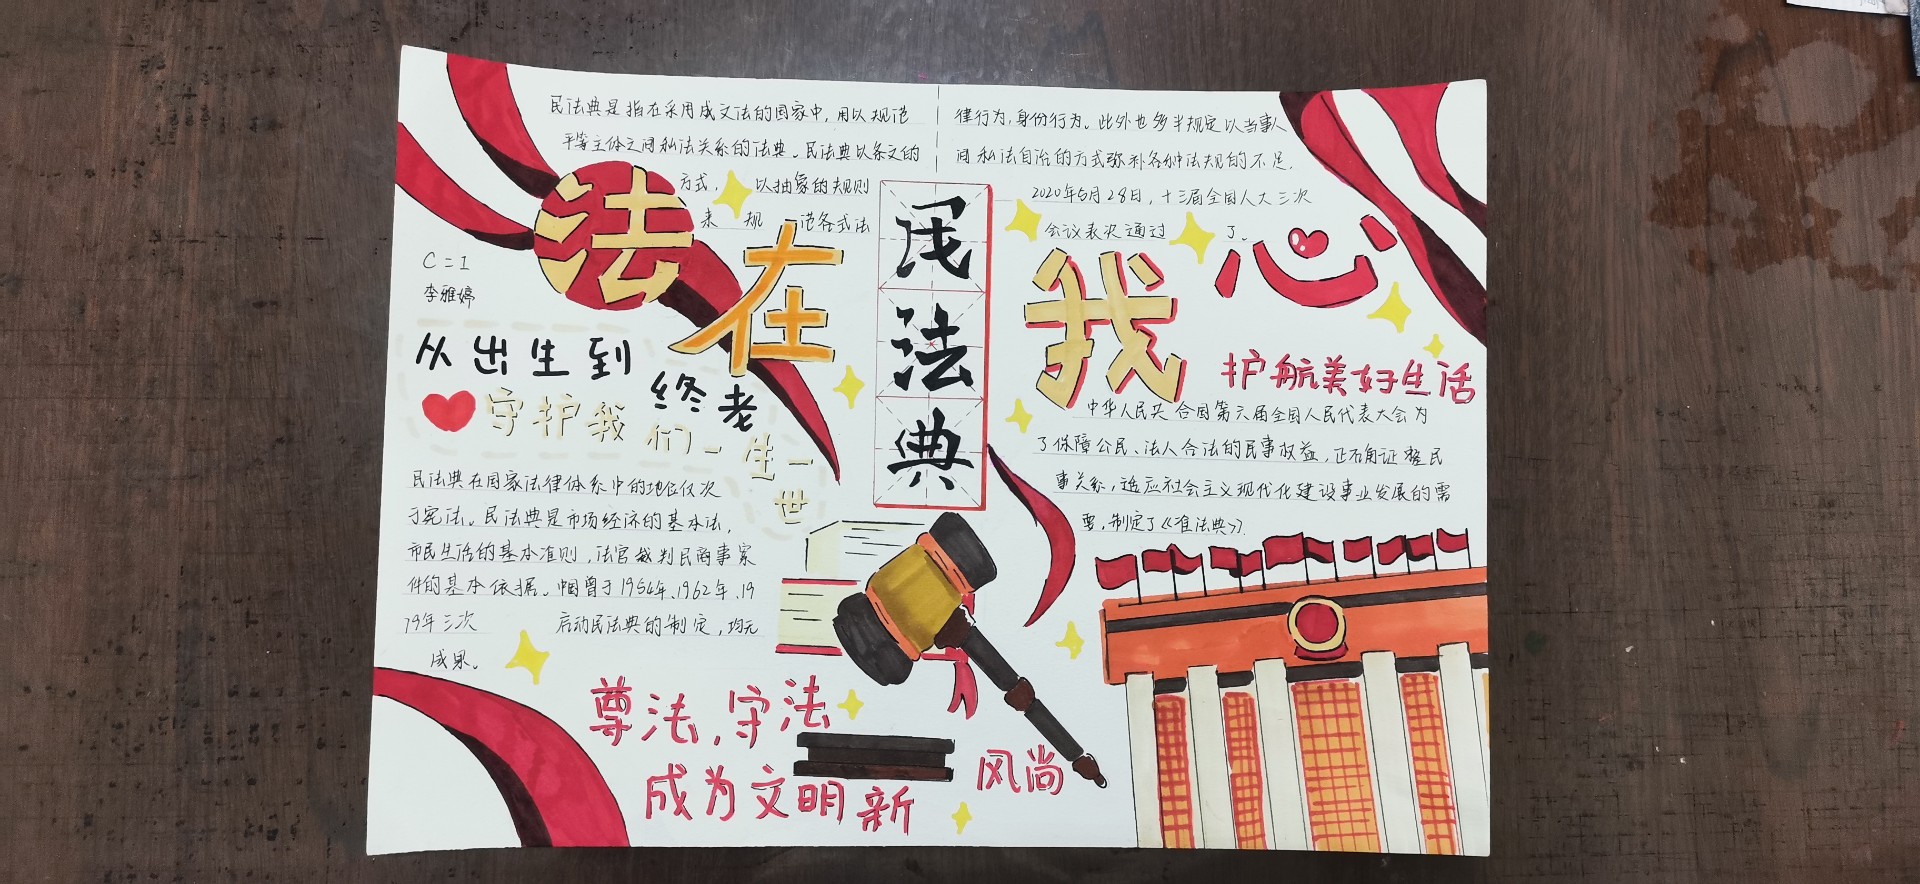 民法典是指在采用成文法的国家中,用以规范
平等主体之间私法关系的法典。民法典以条文的
方式,以抽象的规则
来规范各式法
律行为,身份行为。此外也多半规定以当事人
间私法自治的方式弥补各种法规的不足.
2020年5月28日,十三届全国人大三次
会议表决通过了。
法在我心
民法典
C=1
李雅婷
从出生到终老
守护我们一生一世
民法典在国家法律体系中的地位仅次
于宪法。民法典是市场经济的基本法,
市民生活的基本准则,法官裁判民商事案
件的基本依据。中国曾于1954年、1962年、19
79年三次启动民法典的制定,均无
成果。
护航美好生活
中华人民共合国第六届全国人民代表大会为
了保障公民、法人合法的民事权益,正确证整民
事关系,适应社会主义现代化建设事业发展的需
要,制定了《准法典》
尊法,守法
成为文明新风尚